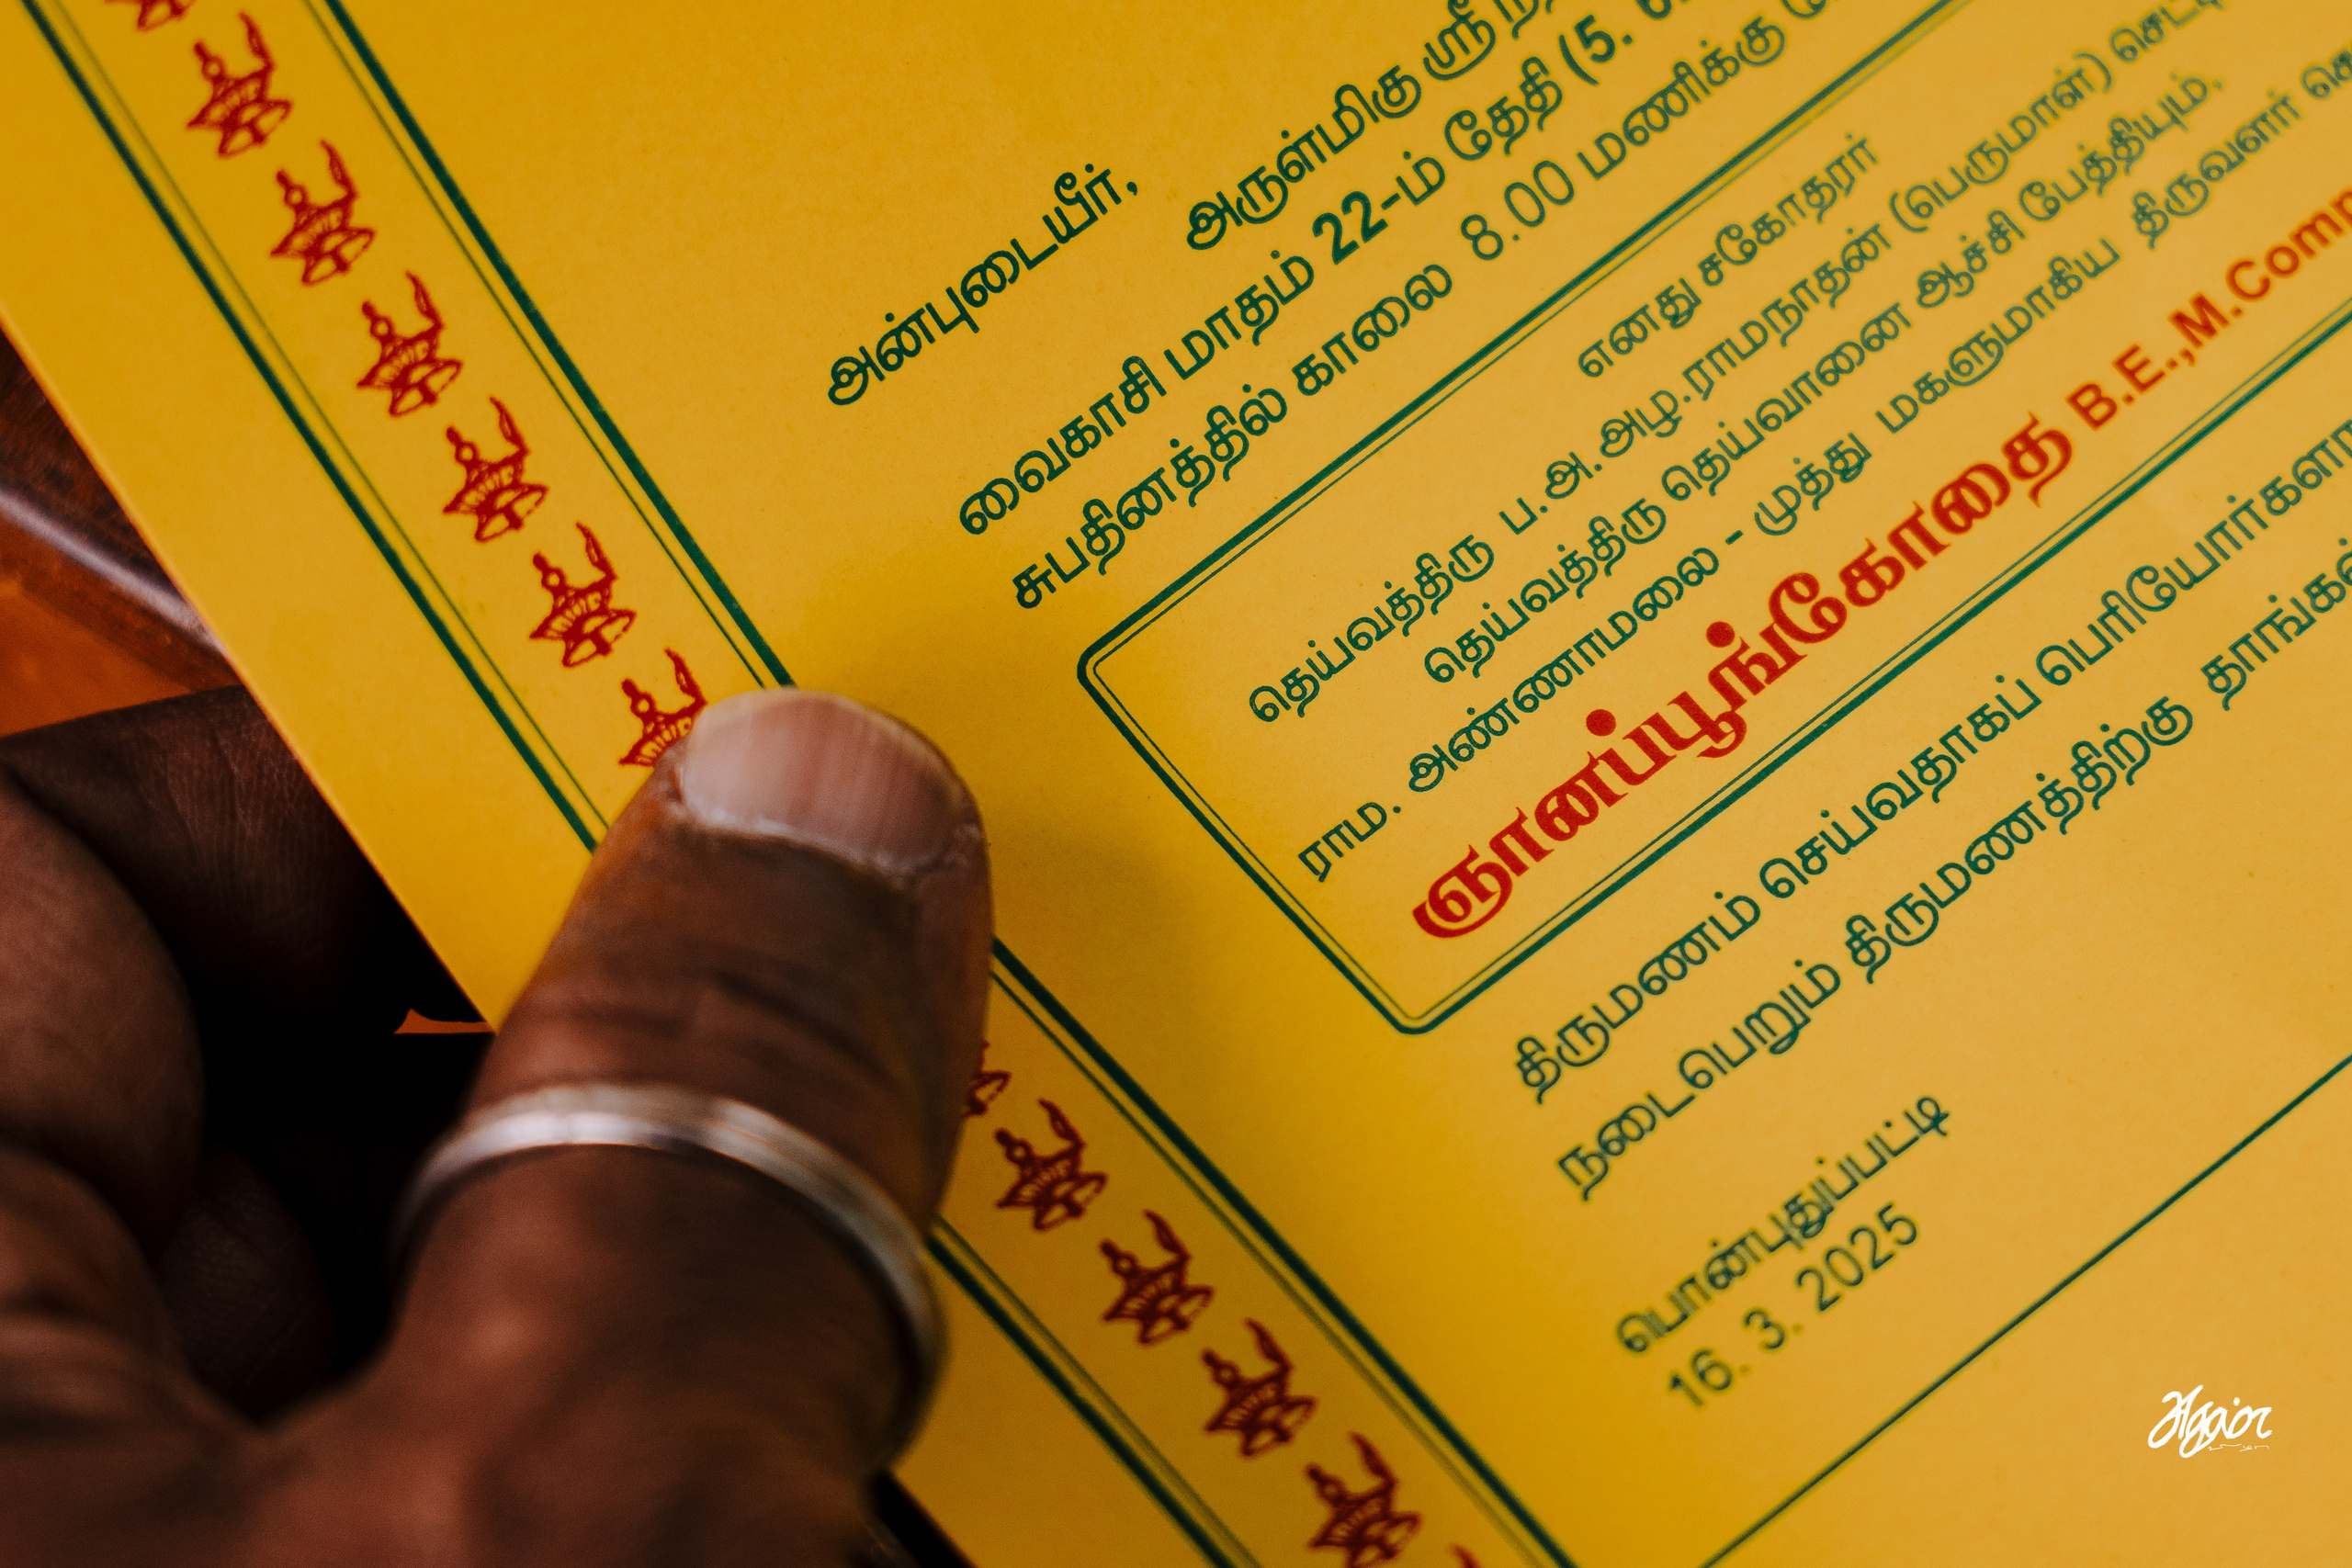 அன்புடையீர்,
அருள்மிகு ஸ்ரீ
வைகாசி மாதம் 22-ம் தேதி (5.
சுபதினத்தில் காலை 8.00 மணிக்கு
எனது சகோதரர்
தெய்வத்திரு ப.அ.அழ.ராமநாதன் (பெருமாள்)
தெய்வத்திரு தெய்வானை ஆச்சி பேத்தியும்,
ராம. அண்ணாமலை - முத்து மகளுமாகிய திருவளர்
ஞானப்பூங்கோதை B.E.,M.Comp
திருமணம் செய்வதாகப் பெரியோர்களா
நடைபெறும் திருமணத்திற்கு தாங்கள்
பொன்புதுப்பட்டி
16. 3. 2025